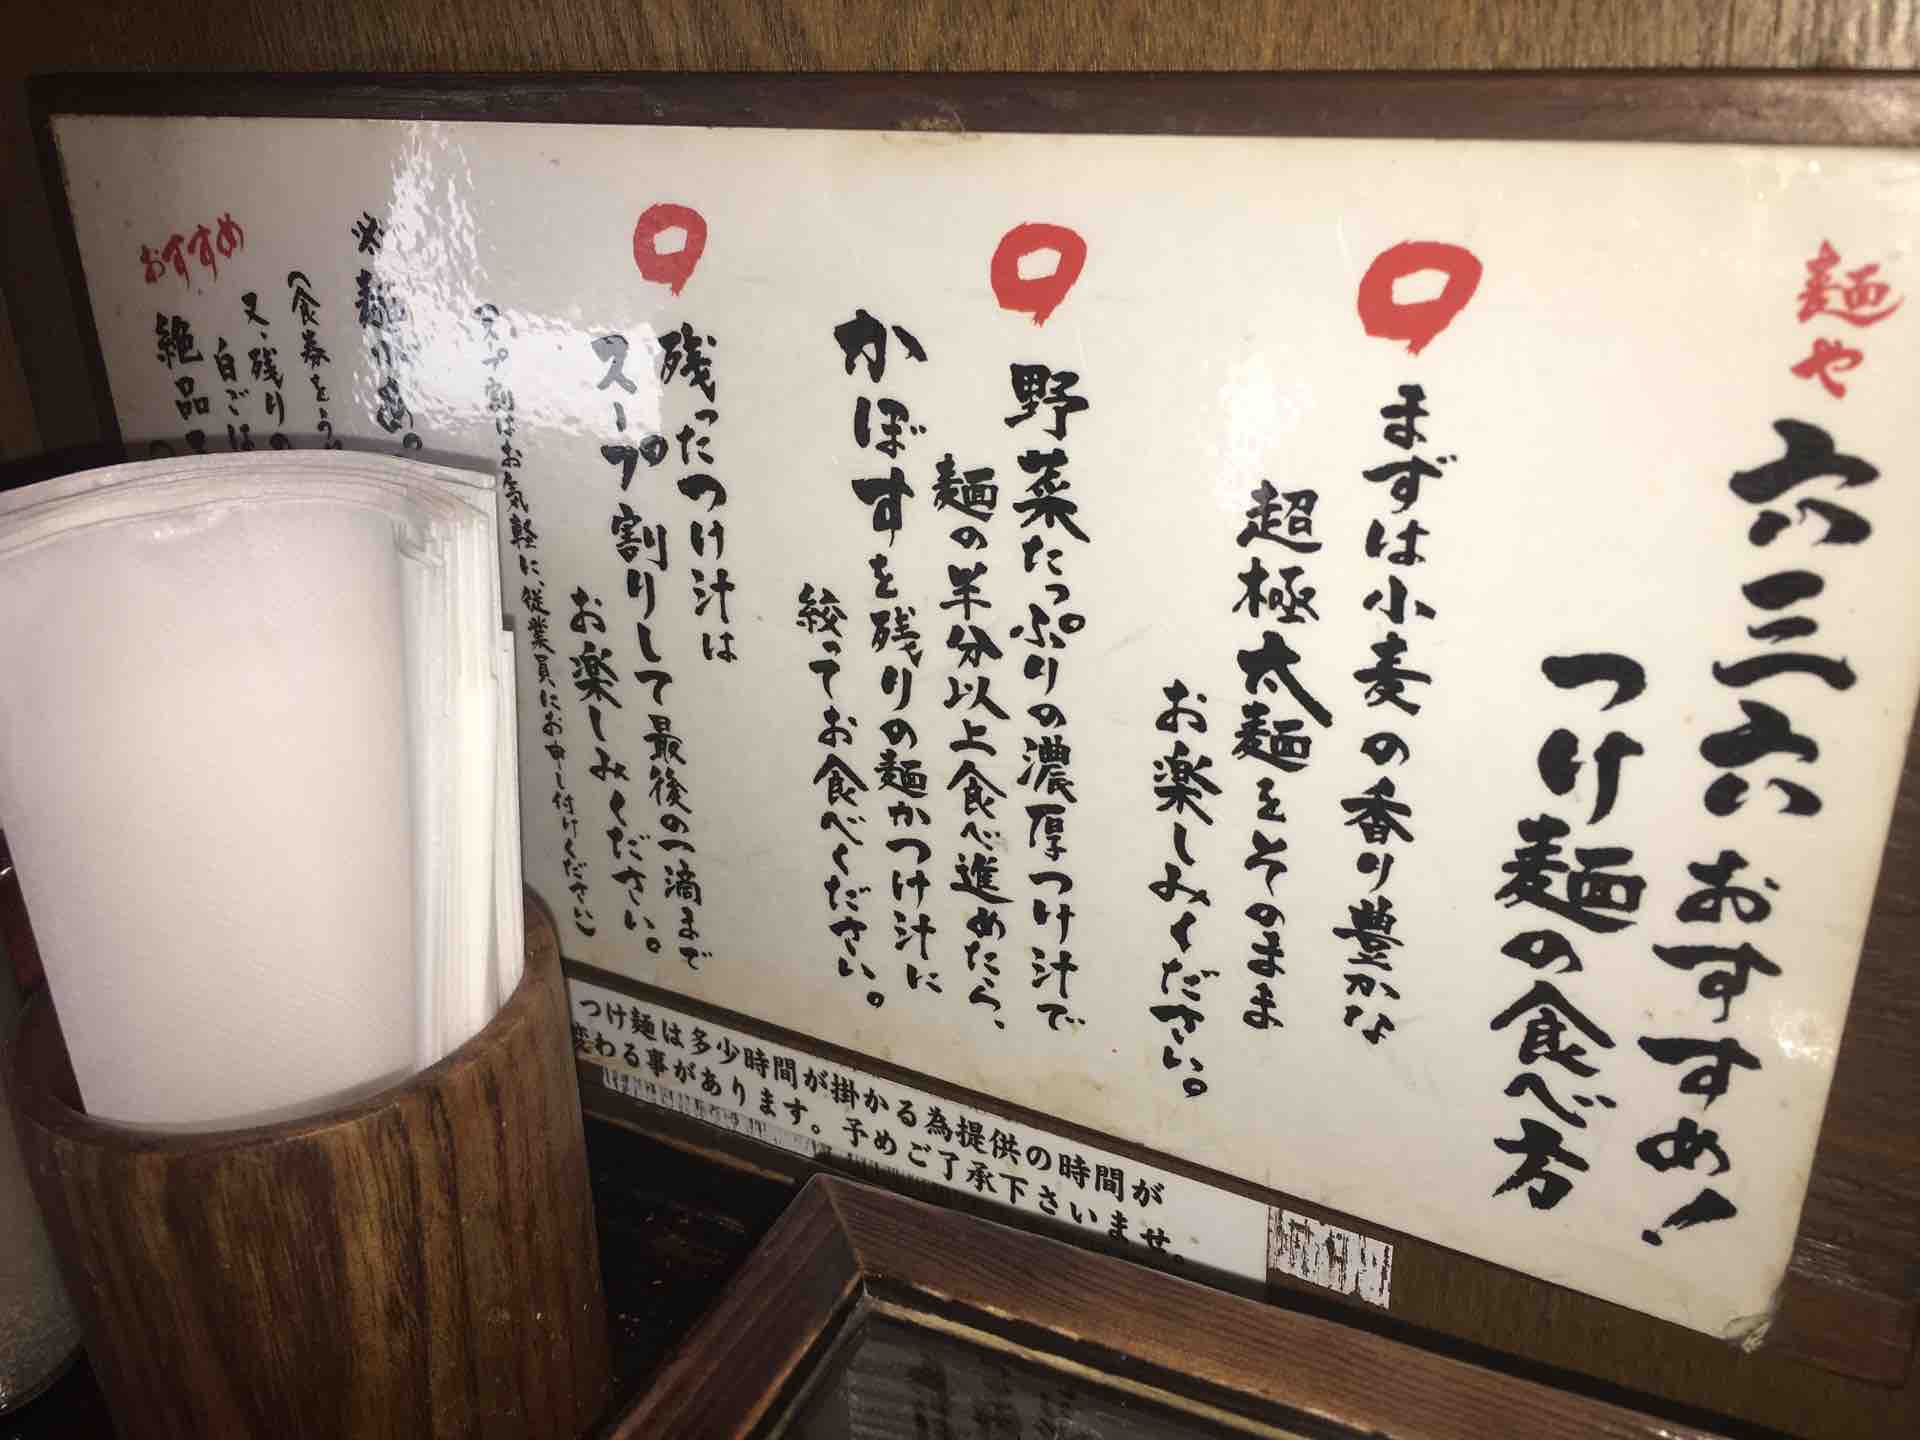 麺や
六三六おすすめ!
つけ麺の食べ方
まずは小麦の香り豊かな
超極太麺をそのまま
お楽しみください。
野菜たっぷりの濃厚つけ汁で
麺の半分以上食べ進めたら、
かぼすを残りの麺かつけ汁に
絞ってお食べください。
残ったつけ汁は
スープ割りして最後の一滴まで
お楽しみください。
スープ割はお気軽に、従業員にお申し付けください
麺
(食券を
又、残りの
白ごは
おすすめ
絶品
つけ麺は多少時間が掛かる為提供の時間が
変わる事があります。予めご了承下さいませ。